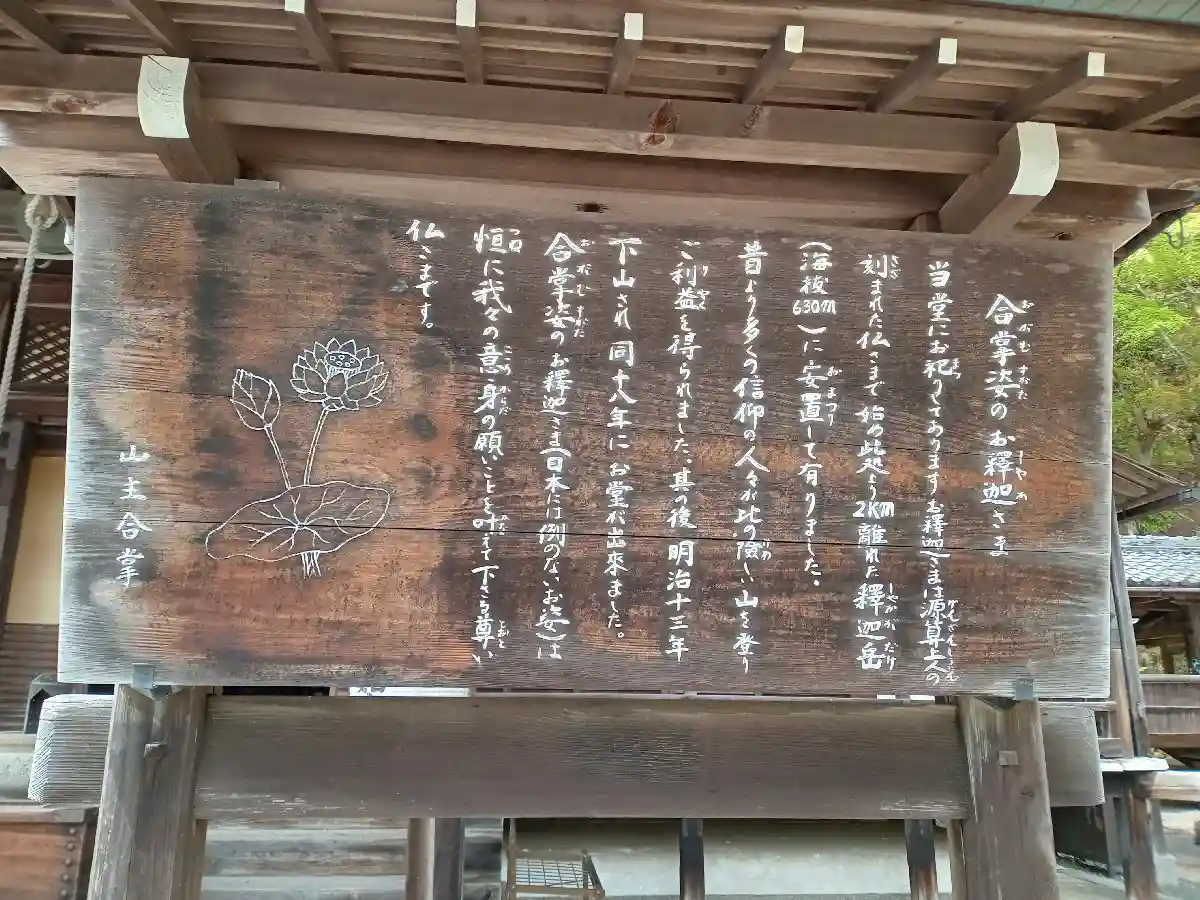 合掌姿のお釋迦さま
当堂にお祀りしてありますお釋迦さまは源算上人の
刻まれた仏さまで始め此処より2Km離れた釋迦岳
(海抜630m)に安置して有りました。
昔より多くの信仰の人々が此の險しい山を登り
ご利益を得られました。其の後明治十三年
下山され同十八年にお堂が出來ました。
合掌姿のお釋迦さま(日本には例のないお姿)は
恒に我々の意身の願いごとをみて下さる尊い
仏さまです。
山主合掌